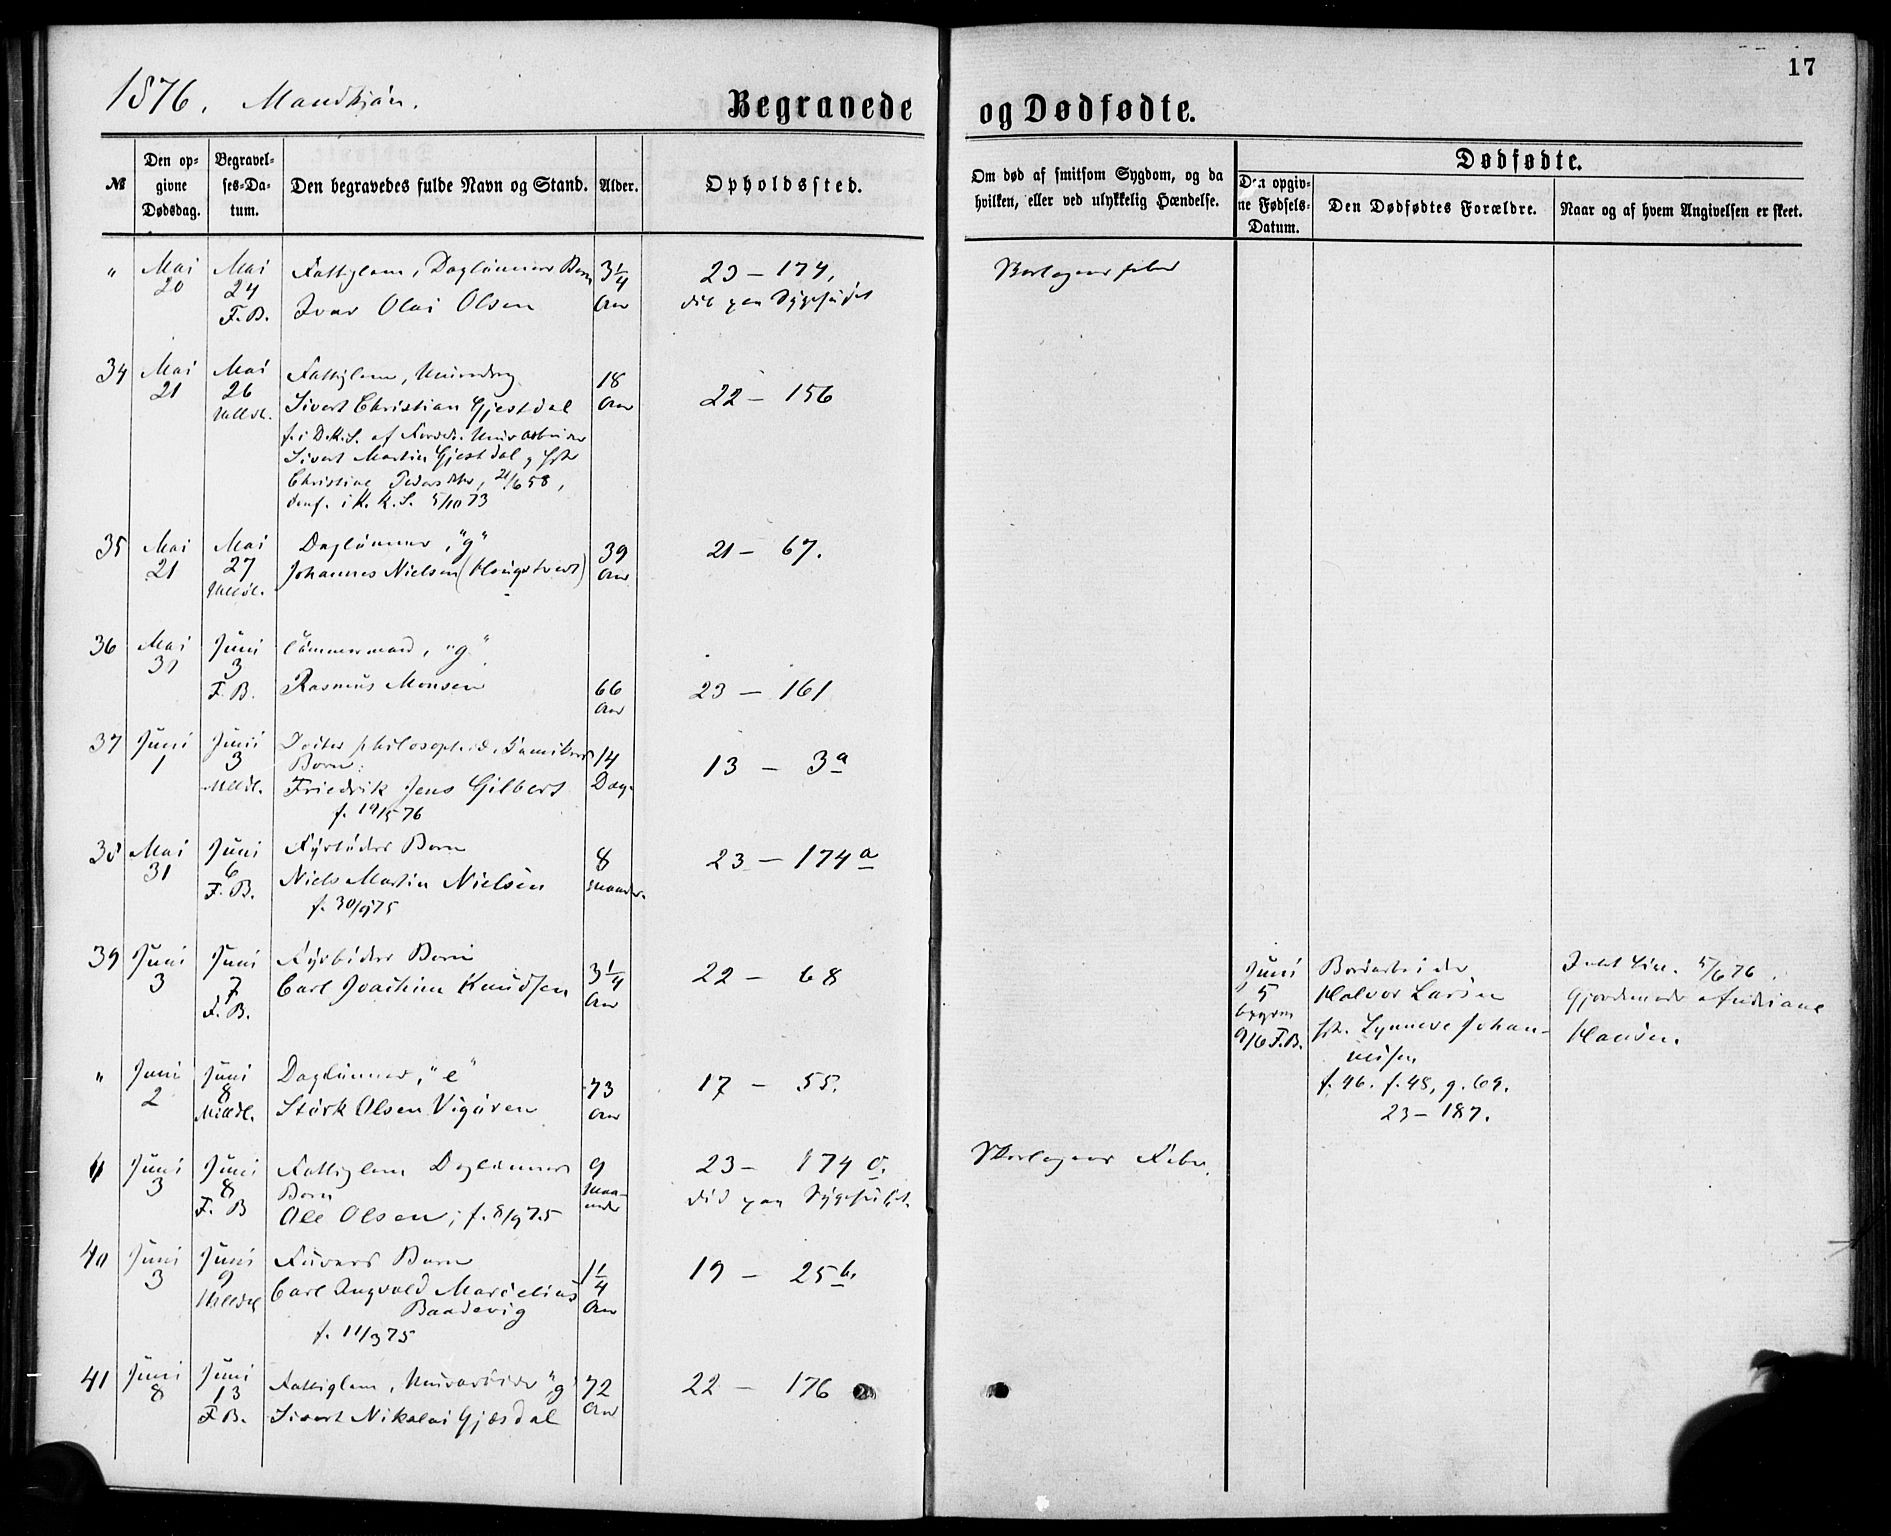 17
1876. Mandkjøn.
Begravede og Dødfødte.
№
Den op=
givne
Dødsdag.
Begravel=
ses=Da=
tum.
Den begravedes fulde Navn og Stand.
Alder.
Opholdssted.
Om død af smitsom Sygdom, og da
hvilken, eller ved ulykkelig Hændelse.
Dødfødte.
Den opgiv=
ne Fødsels=
Datum.
Den Dødfødtes Forældre.
Naar og af hvem Angivelsen er skeet.
" Mai 20 Mai 24 F. B.
Fattiglem, Daglønners Barn
Ivar Olai Olsen
3 1/4 Aar
23 – 174,
død paa Sygehuset
34 Mai 21 Mai 26
Fattiglem,
Sivert Christian Gjestdal
f. i D.K.S. af
Sivert Martin Gjestdal og
Christine 21/6 58,
i K. K. S. 5/10 73
18 Aar
22 – 156
35 Mai 21 Mai 27
Daglønner, "g"
Johannes Nielsen
39 Aar
21 – 67.
36 Mai 31 Juni 3 F. B.
Tømmermand, "g"
Rasmus Monsen
66 Aar
23 – 161
37 Juni 1 Juni 3 Møldl.
Barn:
Friedrik Jens Gilbert
f. 19/5 76
14 Dage
13 – 3 a
38 Mai 31 Juni 6 F. B.
Fyrbøders Barn
Niels Martin Nielsen
f. 30/9 75
8 Maaneder
23 – 174 a
39 Juni 3 Juni 7 F. B.
Fyrbøders Barn
Carl Joachim Knudsen
3 1/4 Aar
22 – 68
Juni
5
9/6 F.B.
Halvor Larsen
Johan-
nesen
f. 46. f. 48, g. 69.
23 – 187.
5/6 76
Gjordemoder Andriane
Hansen.
" Juni 2 Juni 8 Møldl.
Daglønner, "e"
Størk Olsen Vigøren
73 Aar
17 – 55.
" Juni 3 Juni 8 F. B
Fattiglem Daglønners
Barn
Ole Olsen; f. 8/9 75
9 Maa-
neder
23 – 174
død paa Sygehuset.
40 Juni 3 Juni 9 Møldl
Barn
Carl Ingvald Marcelius
Baadevig
f. 11/3 75
1 1/4 Aar
19 – 25 b.
41 Juni 8 Juni 13 F. B.
Fattiglem, Murarbeider "g"
Sivert Nikolai Gjæsdal
72 Aar
22 – 176